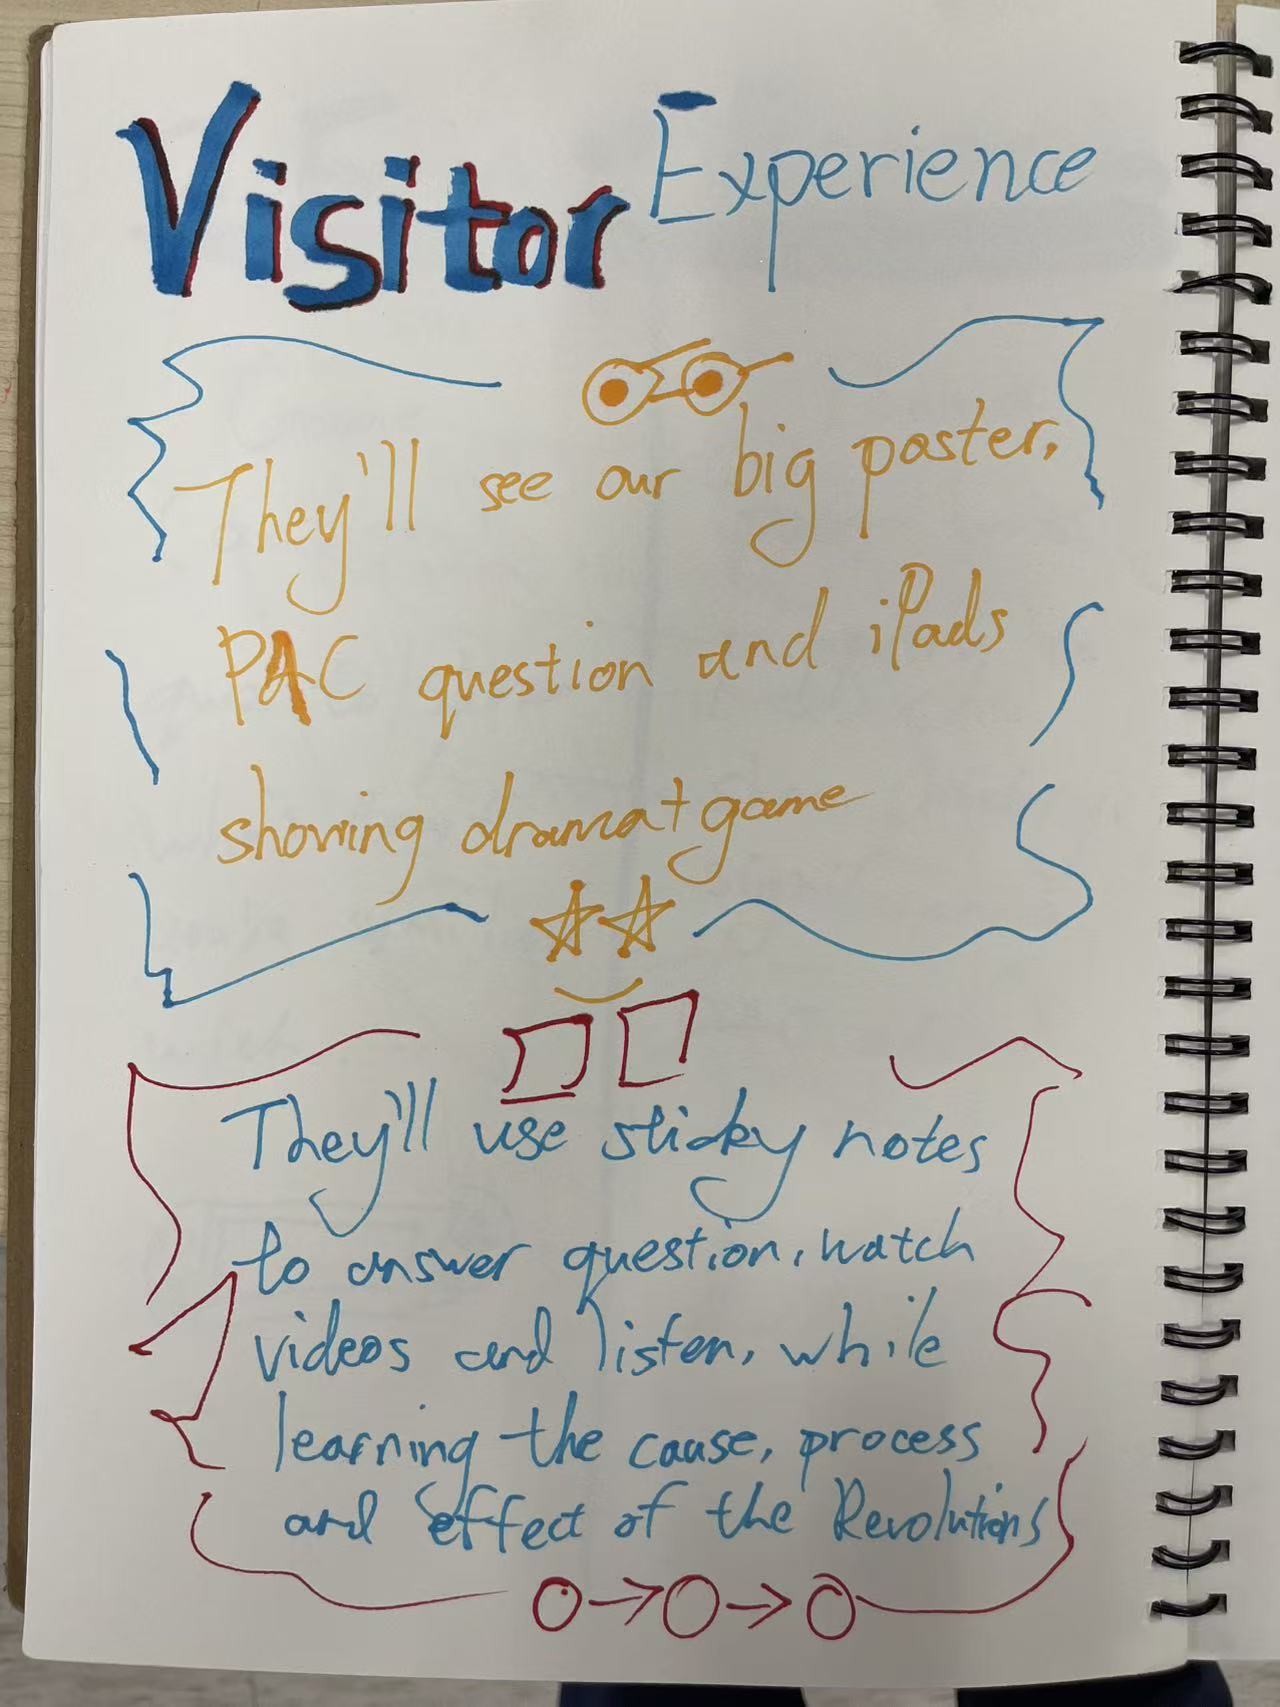 Visitor Experience
They'll see our big poster,
PAC question and iPads
showing drama+game
They'll use sticky notes
to answer question, watch
videos and listen, while
learning the cause, process
and effect of the Revolutions